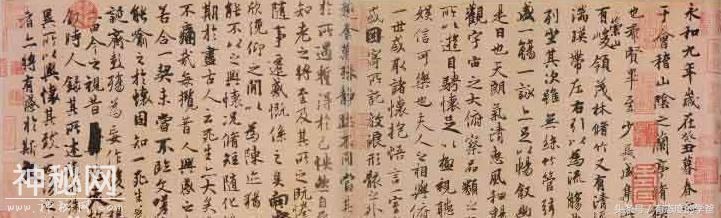 永和九年歲在癸丑暮春
于會稽山陰之蘭亭脩
也群賢畢至少長咸集
有崇山峻領茂林脩竹又有清
湍暎帶左右引以為流觴
列坐其次雖無絲竹管弦
盛一觴一詠亦足以暢敘幽
是日也天朗氣清惠風和暢
觀宇宙之大俯察品類之
所以遊目騁懷足以極視聽
娛信可樂也夫人之相與俯
一世或取諸懷抱悟言一室
或因寄所託放浪形骸之外
趣舍萬殊靜躁不同當其
於所遇蹔得於己怏然自
知老之將至及其所之既惓
隨事遷感慨係之矣向
欣俛仰之閒以為陳迹猶
能不以之興懷況脩短隨化
期於盡古人云死生亦大矣
不痛哉每攬昔人興感之
若合一契未嘗不臨文嗟
能喻之於懷固知一死生
誕齊彭殤為妄作
由今之視昔
敘時人錄其所述
異所以興懷其致一
者亦將有感於斯
神秘网
头条号